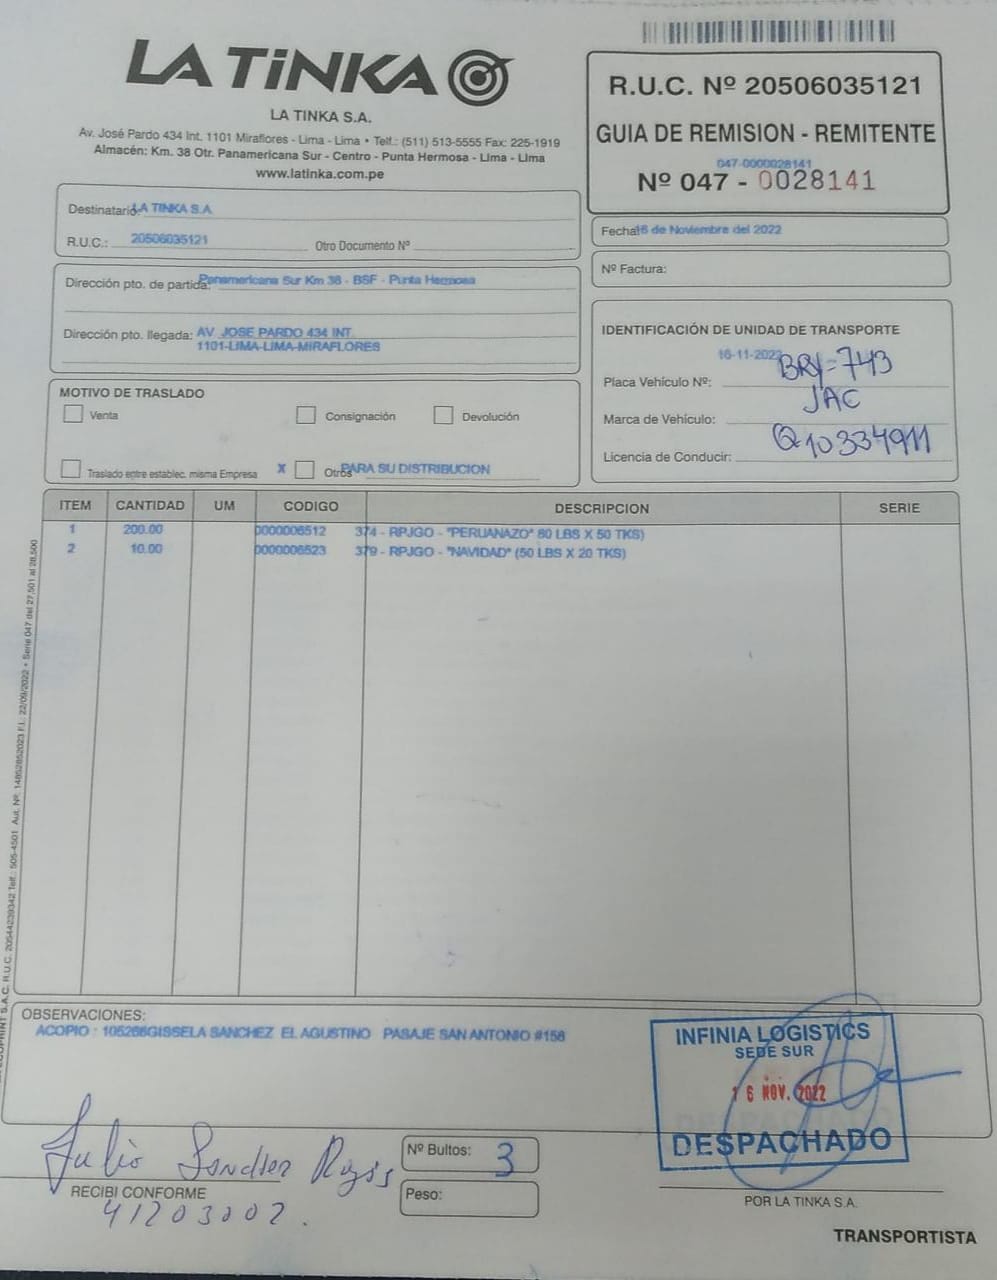 LA TiNKA
LA TINKA S.A.
Av. José Pardo 434 Int. 1101 Miraflores - Lima - Lima • Telf.: (511) 513-5555 Fax: 225-1919
Almacén: Km. 38 Otr. Panamericana Sur - Centro - Punta Hermosa - Lima - Lima
www.latinka.com.pe
R.U.C. Nº 20506035121
GUIA DE REMISION - REMITENTE
047-0000028141
Nº 047 - 0028141
Destinatario: LA TINKA S.A.
R.U.C.: 20506035121 Otro Documento Nº
Fecha: 16 de Noviembre del 2022
Nº Factura:
Dirección pto. de partida: Panamericana Sur Km 38 - BSF - Punta Hermosa
Dirección pto. llegada: AV. JOSE PARDO 434 INT.
1101-LIMA-LIMA-MIRAFLORES
IDENTIFICACIÓN DE UNIDAD DE TRANSPORTE
16-11-2022
Placa Vehículo Nº: BRY-743
Marca de Vehículo: JAC
Licencia de Conducir: Q10334911
MOTIVO DE TRASLADO
Venta Consignación Devolución
Traslado entre establec. misma Empresa X Otros PARA SU DISTRIBUCION
ITEM CANTIDAD UM CODIGO DESCRIPCION SERIE
1 200.00 0000006512 374 - RPJGO - "PERUANAZO" 80 LBS X 50 TKS)
2 10.00 0000006523 379 - RPJGO - "NAVIDAD" (50 LBS X 20 TKS)
S.A.C. R.U.C. 20544239342 Telf.: 505-4501 Aut. Nº: 14852852023 F.I.: 22/09/2022 • Serie 047 del 27,501 al 28,500
OBSERVACIONES:
ACOPIO : 105266GISSELA SANCHEZ EL AGUSTINO PASAJE SAN ANTONIO #158
INFINIA LOGISTICS
SEDE SUR
16 NOV. 2022
DESPACHADO
Julio Sanchez
RECIBI CONFORME
41203002.
Nº Bultos: 3
Peso:
POR LA TINKA S.A.
TRANSPORTISTA